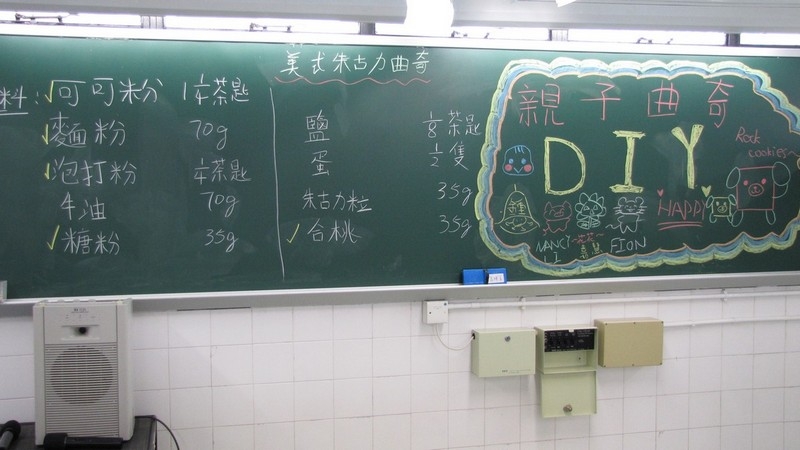 美式朱古力曲奇
料:
可可粉 1½茶匙
麵粉 70g
泡打粉 ½茶匙
牛油 70g
糖粉 35g
鹽 ⅛茶匙
蛋 ½隻
朱古力粒 35g
合桃 35g
親子曲奇
DIY
Rock
cookies~
HAPPY
NANCY
LI
FION